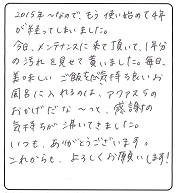 2015年〜なので、もう使い始めて4年
が経ってしまいました。
今日、メンテナンスに来て頂いて、1年分
の汚れを見せて貰いました。毎日、
美味しいご飯を気持ち良いお
風呂に入れるのは、アクアスの
おかげだな〜って、感謝の
気持ちが湧いてきました。
いつも、ありがとうございます。
これからも、よろしくお願いします!